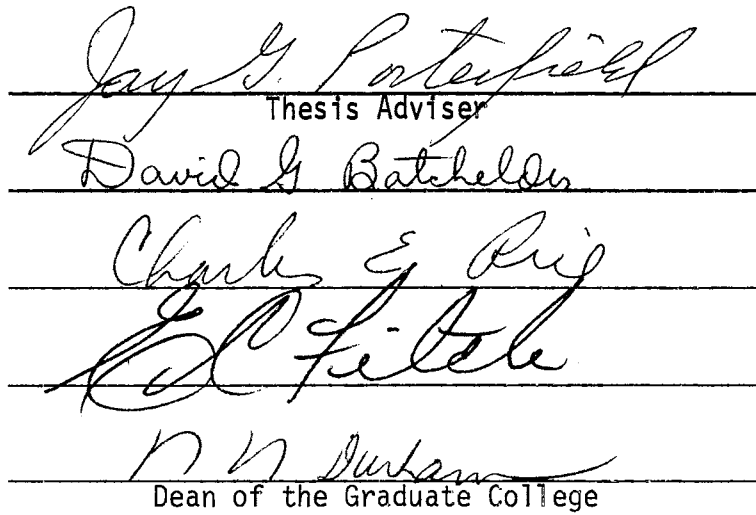 Jay G. Porterfield
Thesis Adviser
David G Batchelder
Charles E Rice
E C Fitch
N N Durham
Dean of the Graduate College